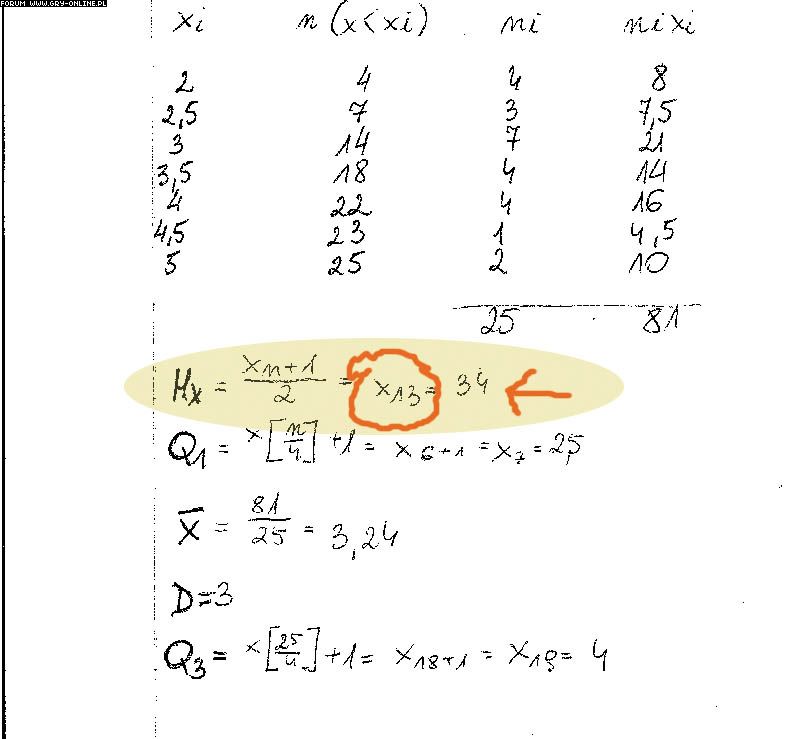 FORUM WWW.GRY-ONLINE.PL
xi n (x<xi) ni nixi
2 4 4 8
2,5 7 3 7,5
3 14 7 21
3,5 18 4 14
4 22 4 16
4,5 23 1 4,5
5 25 2 10
25 81
Mx = xn+1/2 = x13 = 34
Q1 = x[n/4]+1 = x6+1 = x7 = 2,5
x̄ = 81/25 = 3,24
D=3
Q3 = x[25/4]+1 = x18+1 = x19 = 4